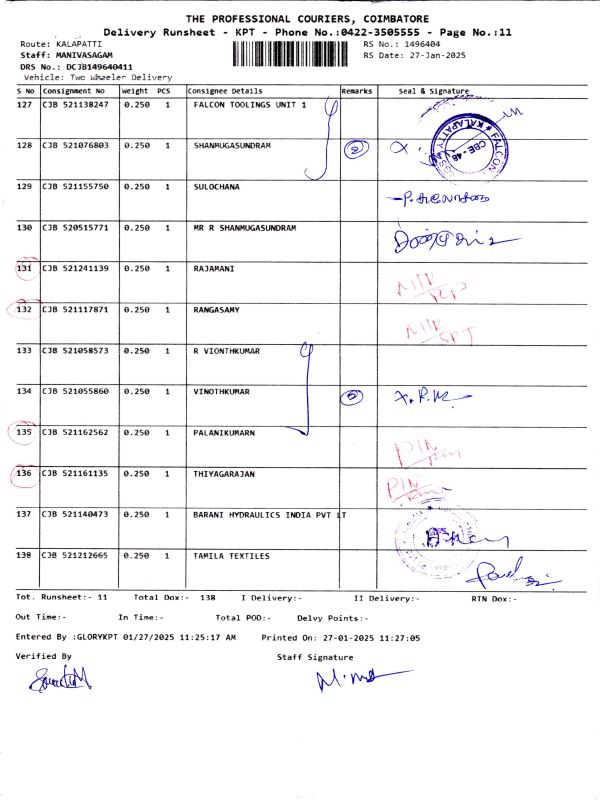 THE PROFESSIONAL COURIERS, COIMBATORE
Delivery Runsheet - KPT - Phone No.:0422-3505555 - Page No.:11
Route: KALAPATTI RS No.: 1496404
Staff: MANIVASAGAM RS Date: 27-Jan-2025
DRS No.: DCJB149640411
Vehicle: Two Wheeler Delivery
S No Consignment No Weight PCS Consignee Details Remarks Seal & Signature
127 CJB 521138247 0.250 1 FALCON TOOLINGS UNIT 1
FALCON KALAPATTY CBE - 48
128 CJB 521076803 0.250 1 SHANMUGASUNDRAM 2
129 CJB 521155750 0.250 1 SULOCHANA
130 CJB 520515771 0.250 1 MR R SHANMUGASUNDRAM
131 CJB 521241139 0.250 1 RAJAMANI
132 CJB 521117871 0.250 1 RANGASAMY
133 CJB 521058573 0.250 1 R VIONTHKUMAR
134 CJB 521055860 0.250 1 VINOTHKUMAR 2
135 CJB 521162562 0.250 1 PALANIKUMARN
136 CJB 521161135 0.250 1 THIYAGARAJAN
137 CJB 521140473 0.250 1 BARANI HYDRAULICS INDIA PVT LT
138 CJB 521212665 0.250 1 TAMILA TEXTILES
Tot. Runsheet:- 11 Total Dox:- 138 I Delivery:- II Delivery:- RTN Dox:-
Out Time:- In Time:- Total POD:- Delvy Points:-
Entered By :GLORYKPT 01/27/2025 11:25:17 AM Printed On: 27-01-2025 11:27:05
Verified By Staff Signature